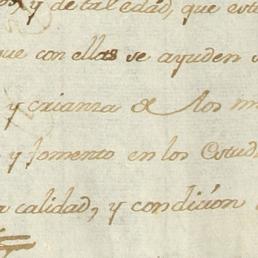 y de tal edad, que este
que con ellas se ayuden
y crianza de los
y fomento en los Estud
calidad, y condición